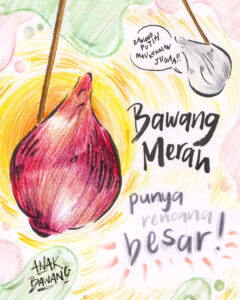 BAWANG
PUTIH
MAU KENALAN
JUGA!!
Bawang
Merah
punya
rencana
besar!
ANAK
BAWANG